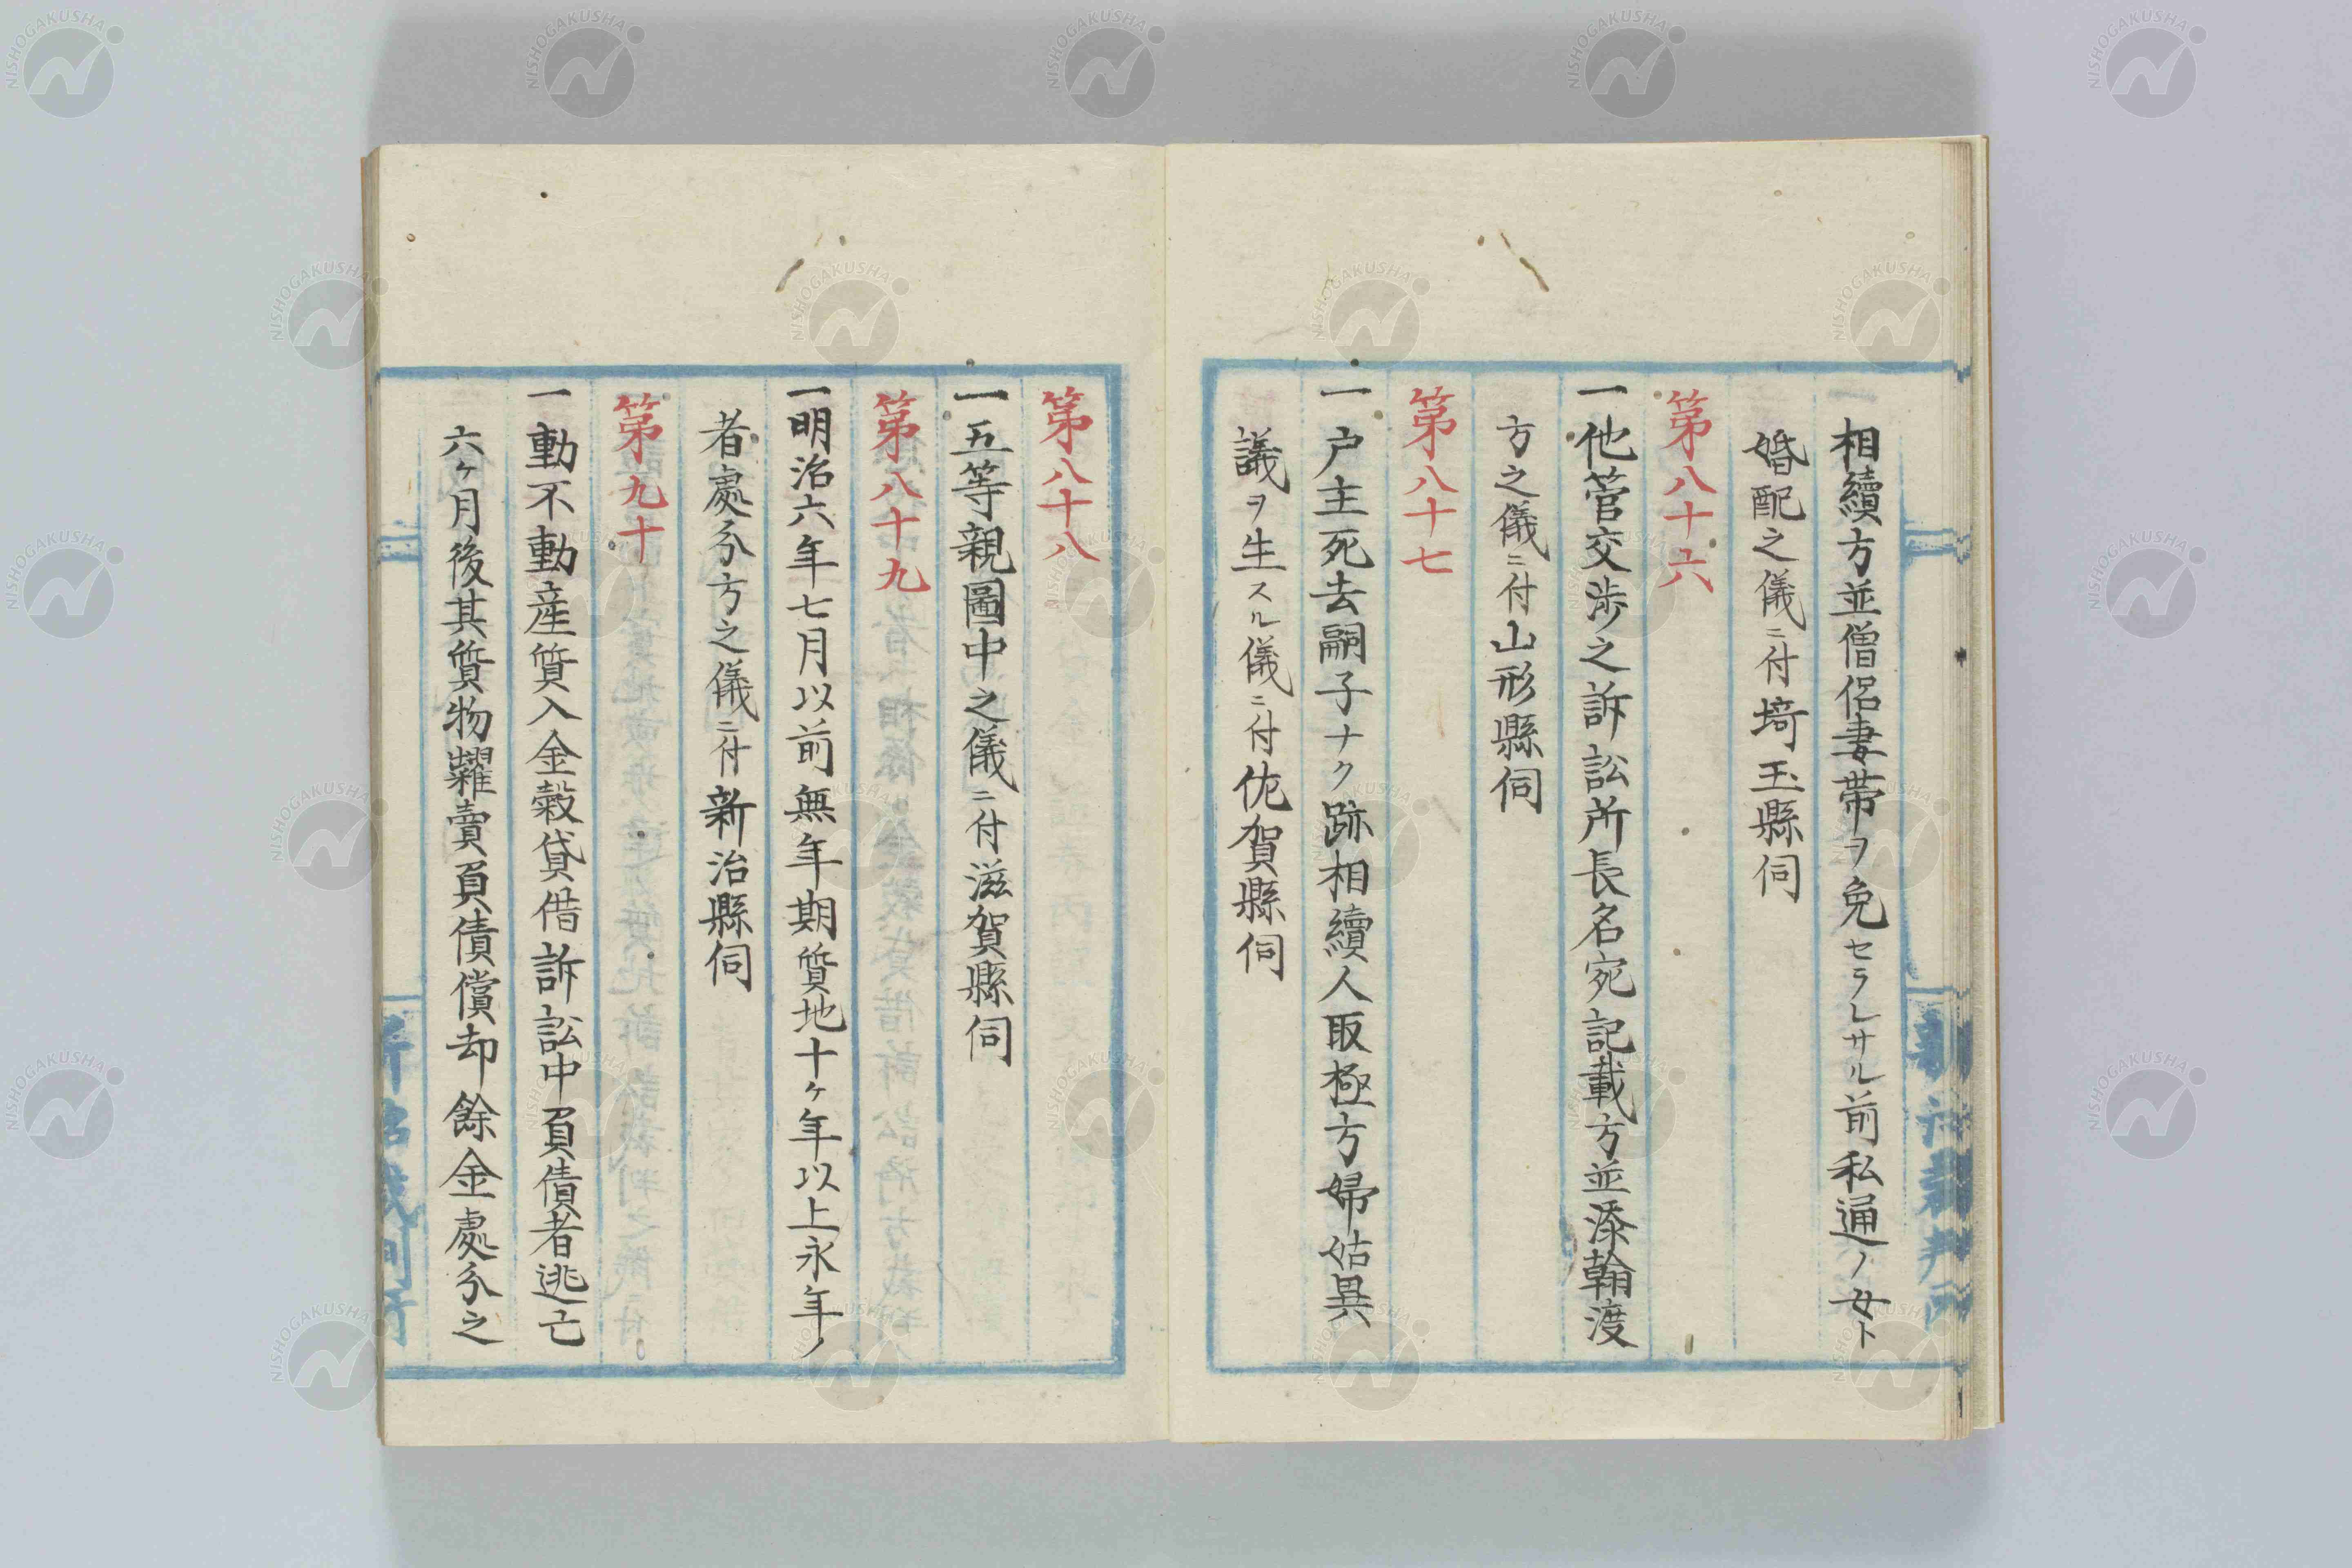 相續方並僧侶妻帶ヲ免セラレサル前私通ノ女ト
婚配之儀ニ付埼玉縣伺
第八十六
一他菅交渉之訴訟所長名宛記載方並添翰渡
方之儀ニ付山形縣伺
第八十七
一戸主死去嗣子ナク跡相續人取極方婦姑異
議ヲ生スル儀ニ付佐賀縣伺
第八十八
一五等親圖中之儀ニ付滋賀縣伺
第八十九
一明治六年七月以前無年期質地十ヶ年以上永年ノ
者處分方之儀ニ付新治縣伺
第九十
一動不動產質入金穀貸借訴訟中負債者逃亡
六ヶ月後其質物糶賣負債償却餘金處分之
新治裁判所
NISHOGAKUSHA